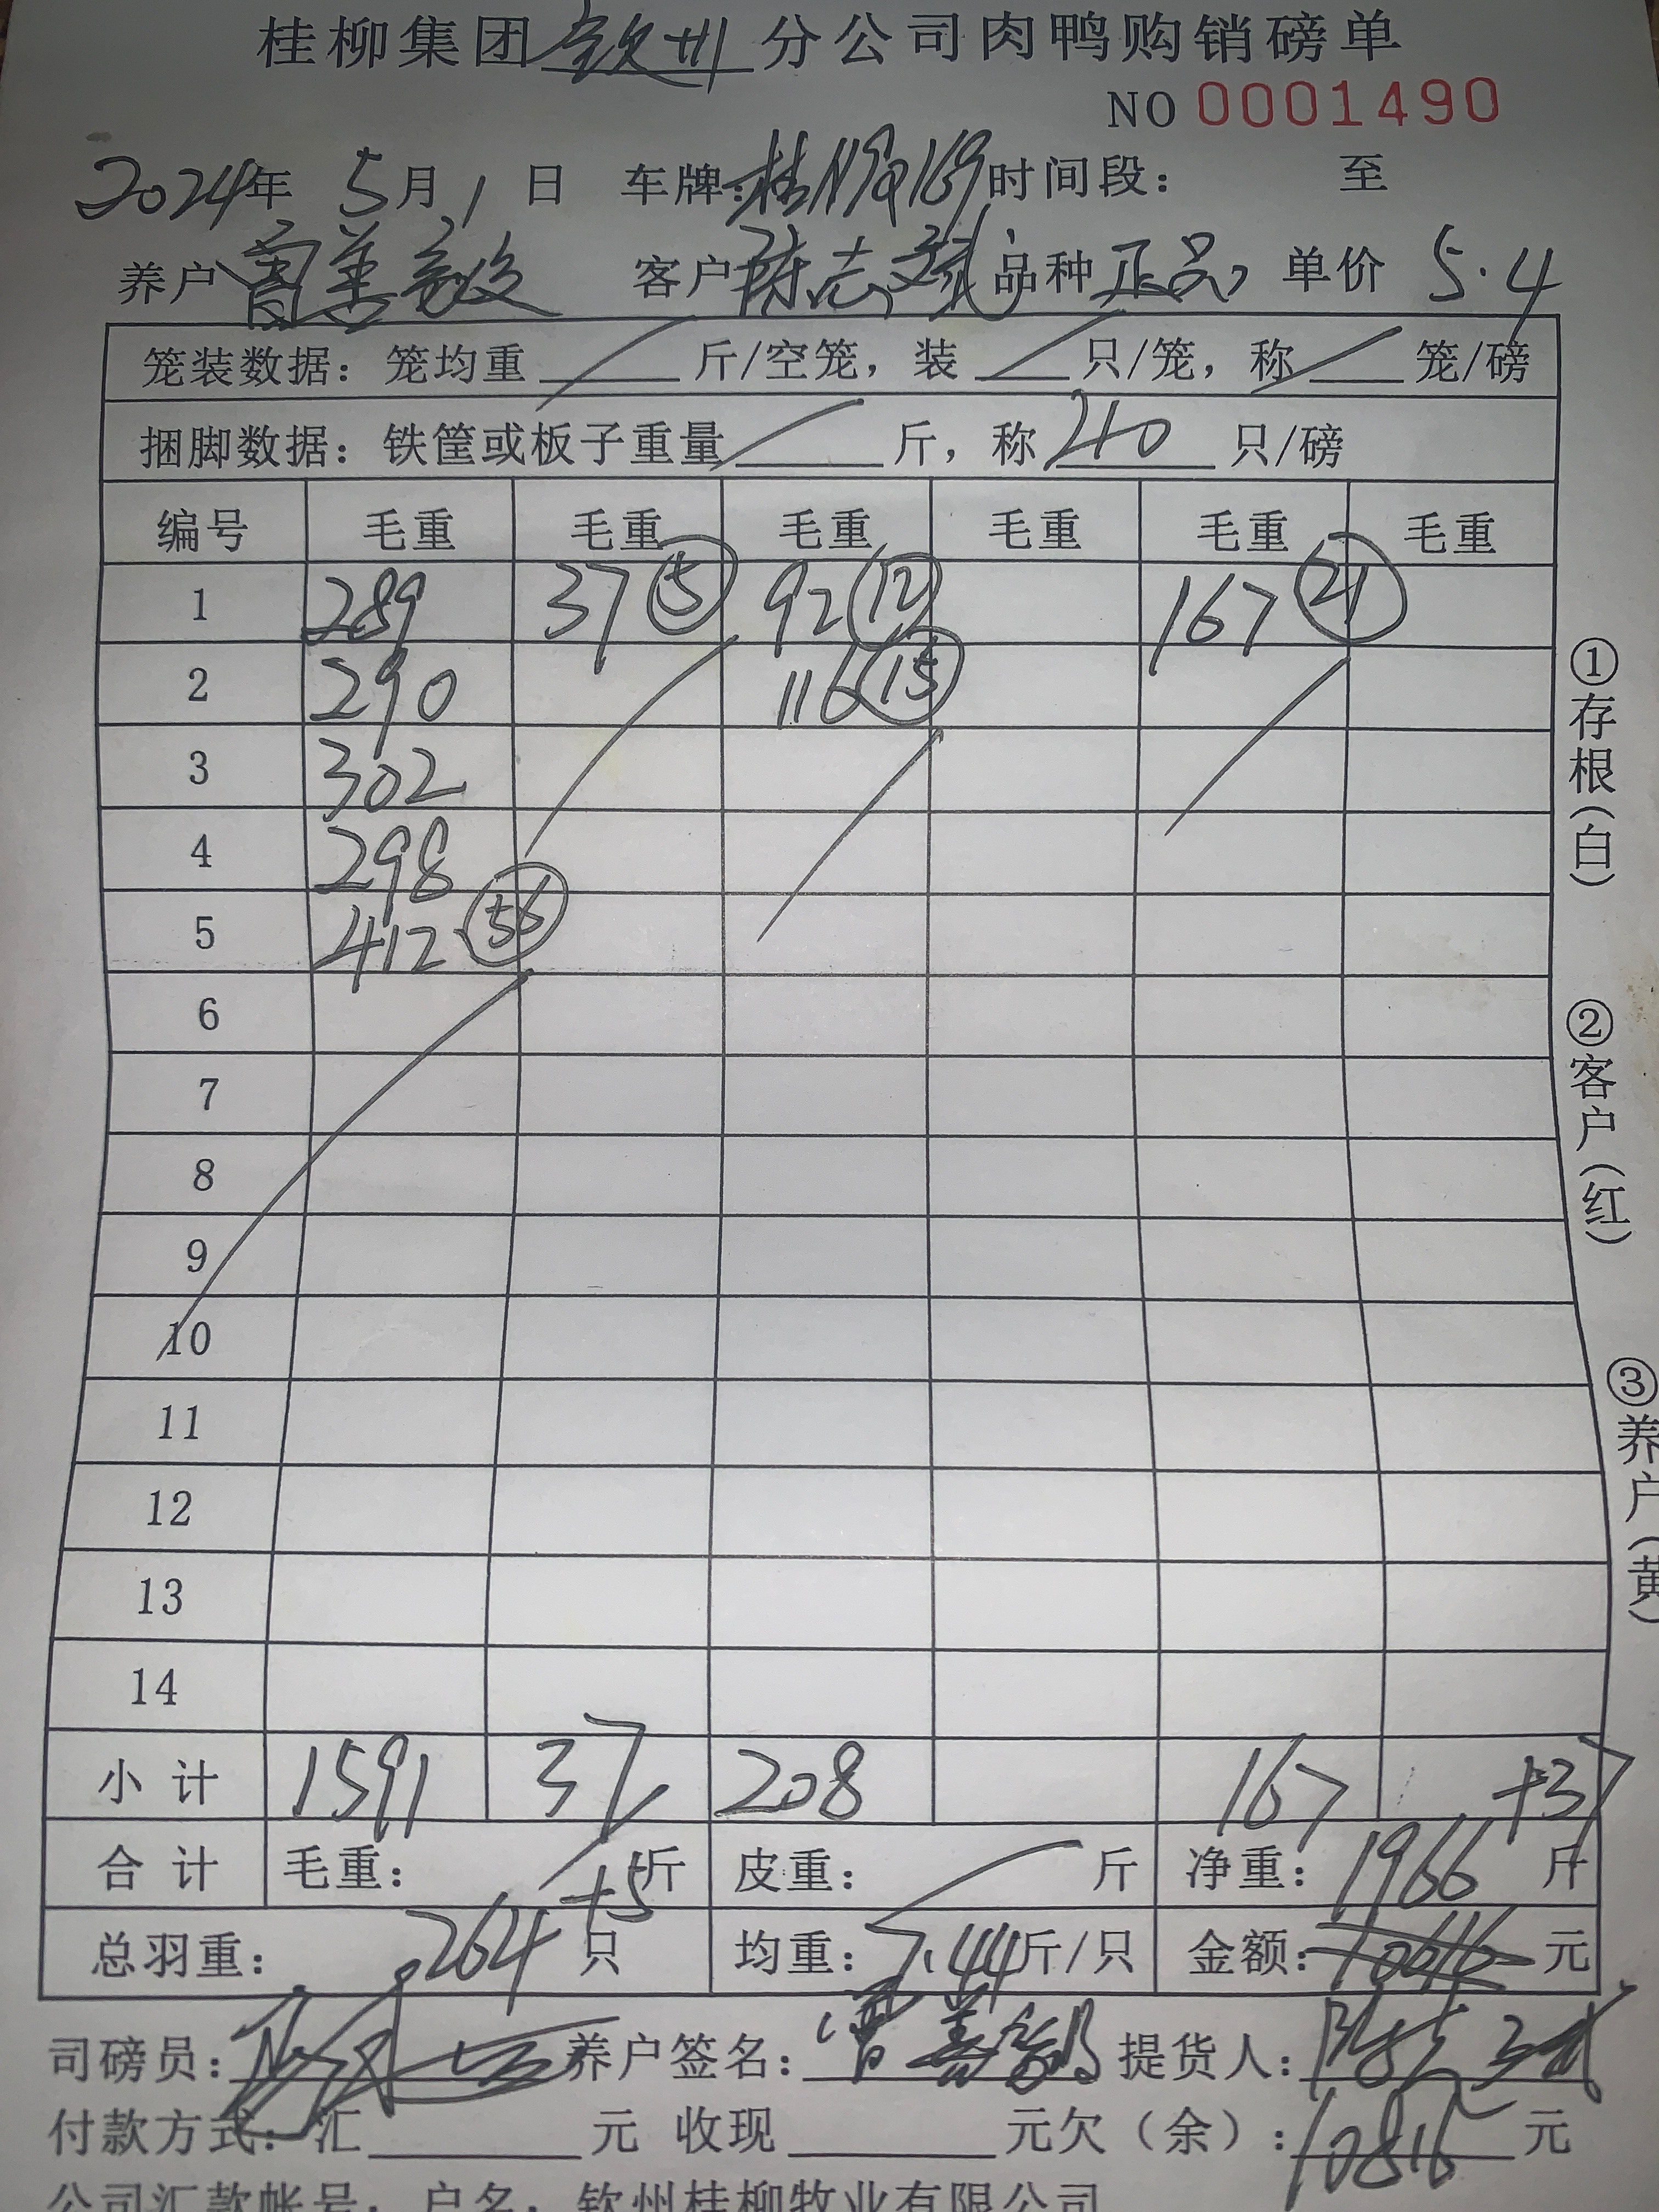 桂柳集团钦州分公司肉鸭购销磅单
NO 0001490
2024年 5月1日 车牌:桂N9Q169 时间段: 至
养户 曾善敏 客户 陈志斌 品种 正品 单价 5.4
笼装数据:笼均重 斤/空笼,装 只/笼,称 笼/磅
捆脚数据:铁筐或板子重量 斤,称 40 只/磅
编号 毛重 毛重 毛重 毛重 毛重 毛重
1 289 37 ⑤ 92 ⑫ 167 ㉑
2 290 116 ⑮
3 302
4 298
5 412 56
6
7
8
9
10
11
12
13
14
小计 1591 37 208 167 +37
合计 毛重: 斤 皮重: 斤 净重: 1966 斤
总羽重: 264 +5 只 均重: 7.44 斤/只 金额: 元
司磅员: 养户签名: 曾善敏 提货人: 陈志斌
付款方式: 汇 元 收现 元欠(余): 10816 元
公司汇款帐号: 户名: 钦州桂柳牧业有限公司
①存根(白)
②客户(红)
③养户(黄)